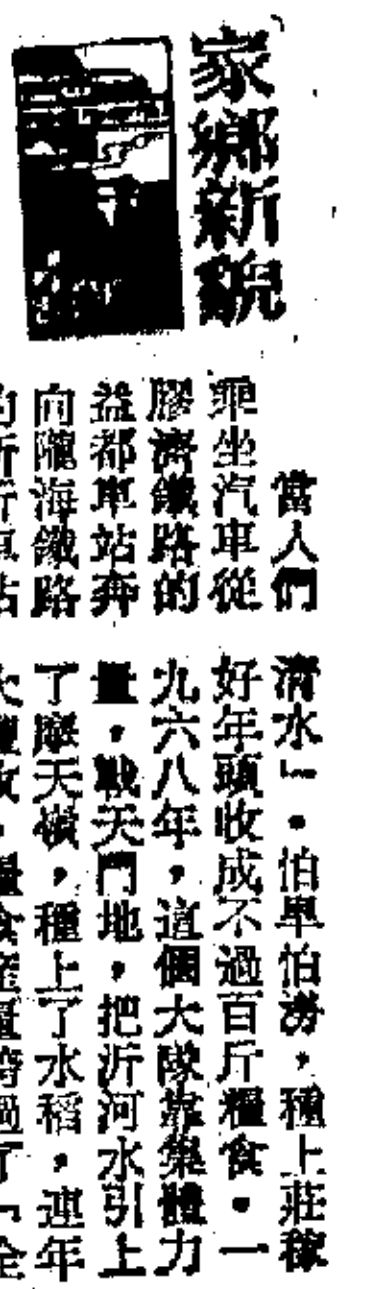 家鄉新貌
當人們
乘坐汽車從
膠濟鐵路的
益都車站奔
向隴海鐵路
的新沂車站
清水」。怕旱怕澇，種上莊稼
好年頭收成不過百斤糧食。一
九六八年，這個大隊靠集體力
量，戰天鬥地，把沂河水引上
了摩天嶺，種上了水稻，連年
大豐收，糧食產量跨過了「全